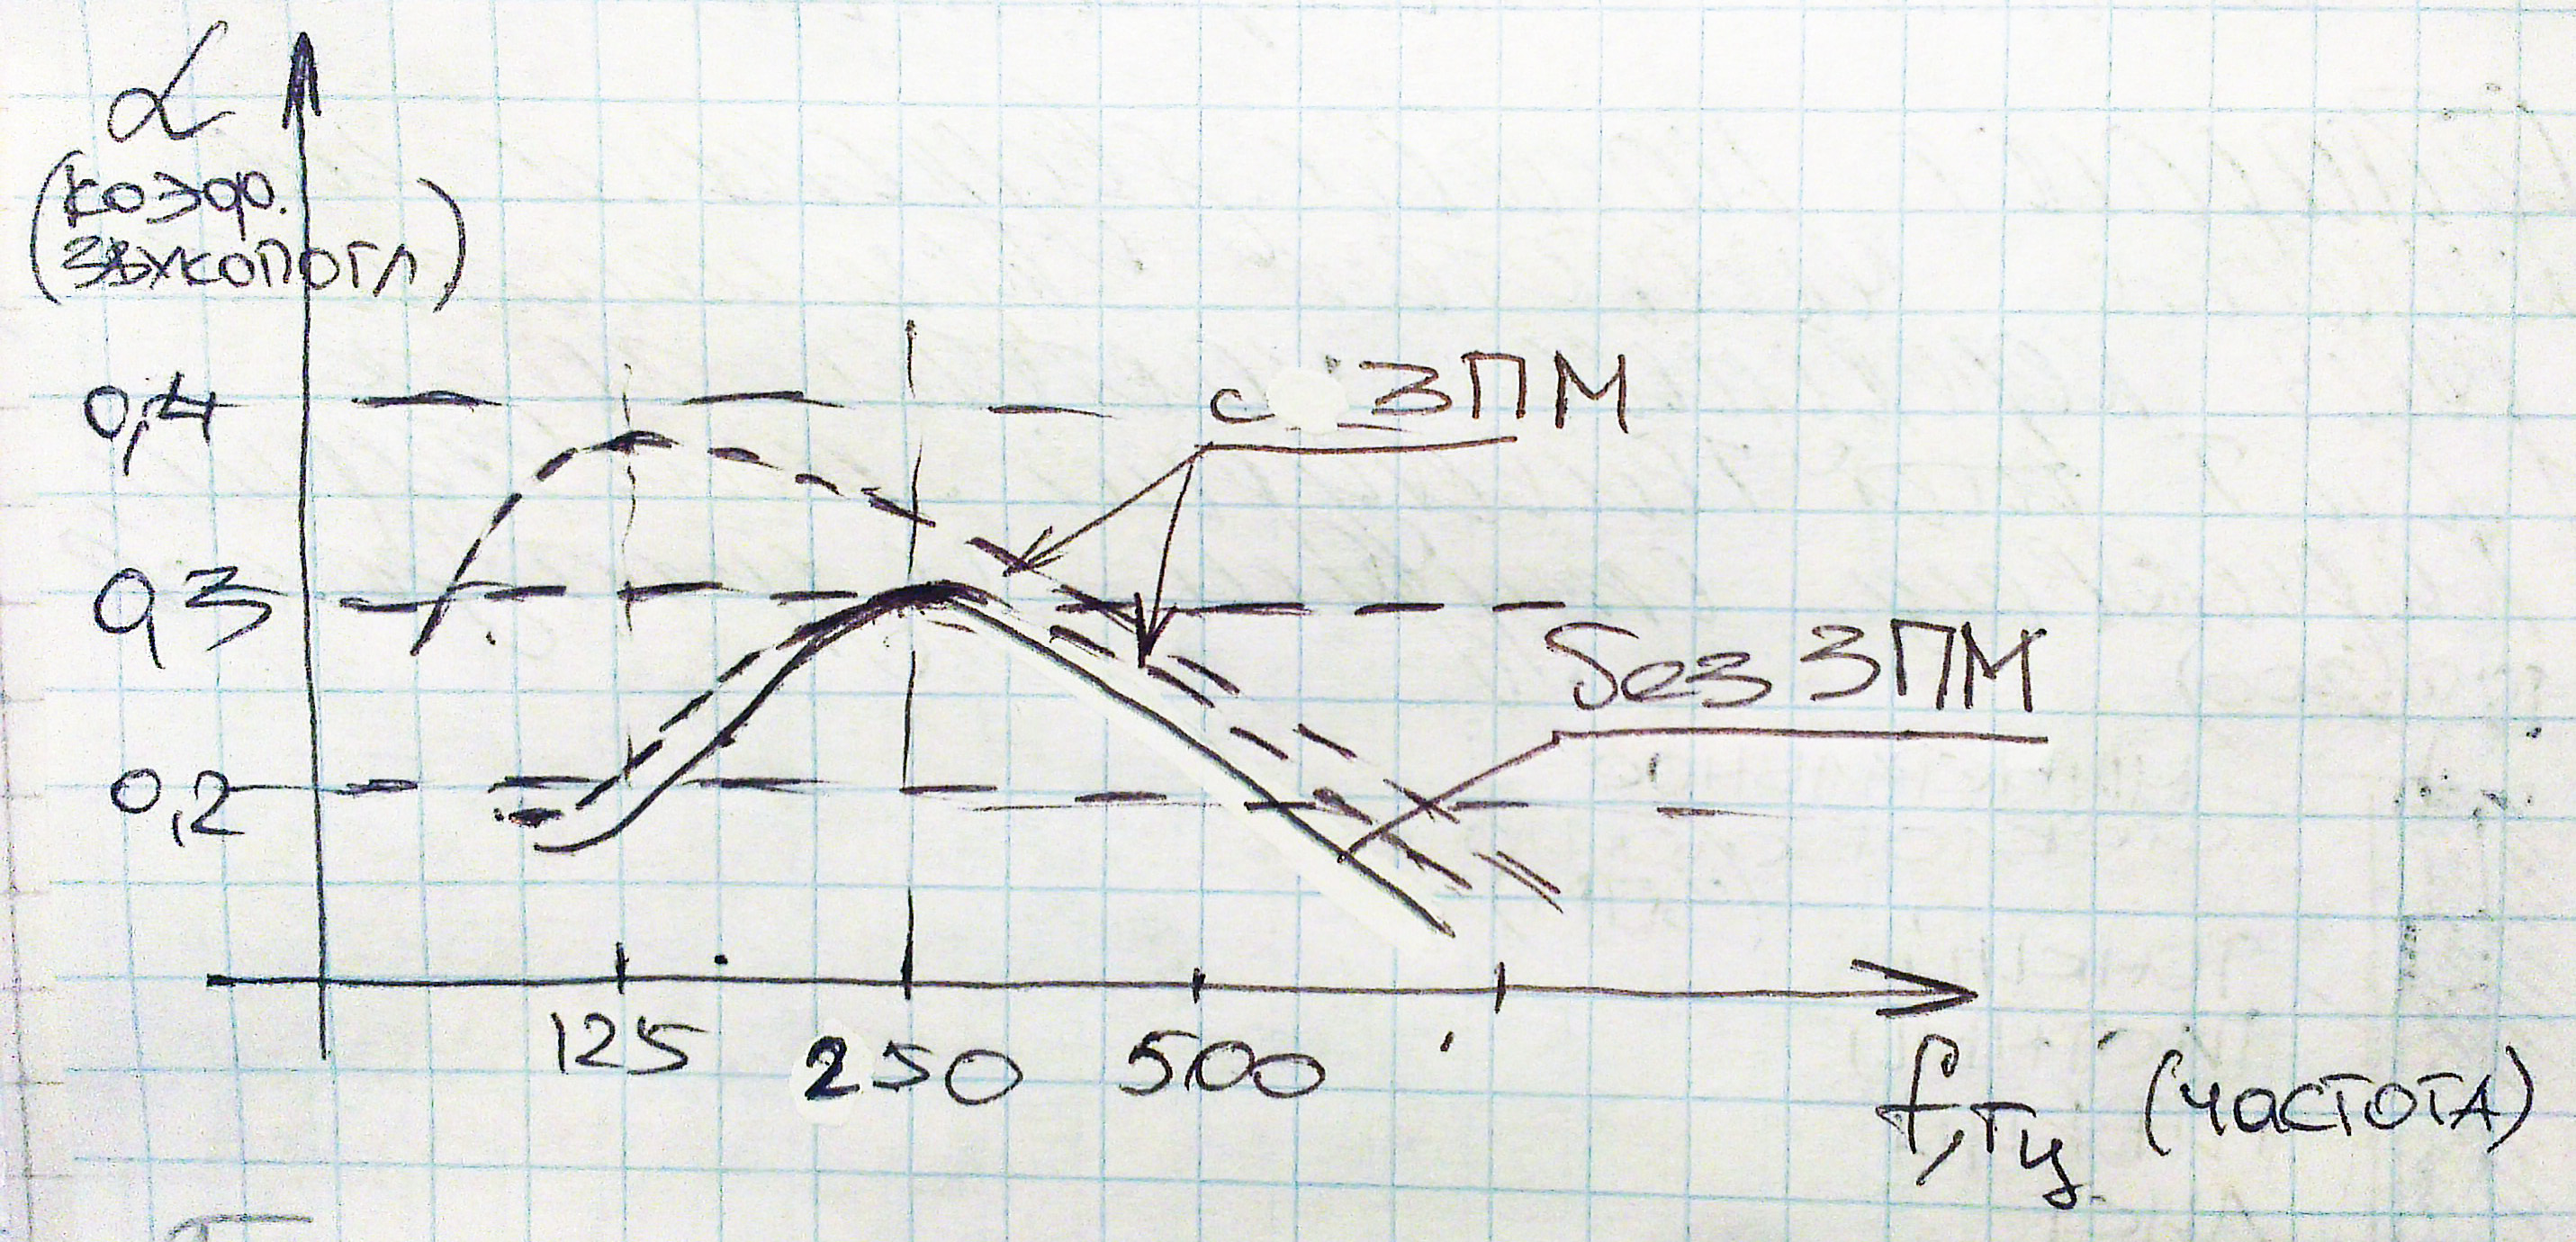 α
(коэф.
звукопогл)
0,4
0,3
0,2
с ЗПМ
без ЗПМ
125
250
500
f, Гц (частота)